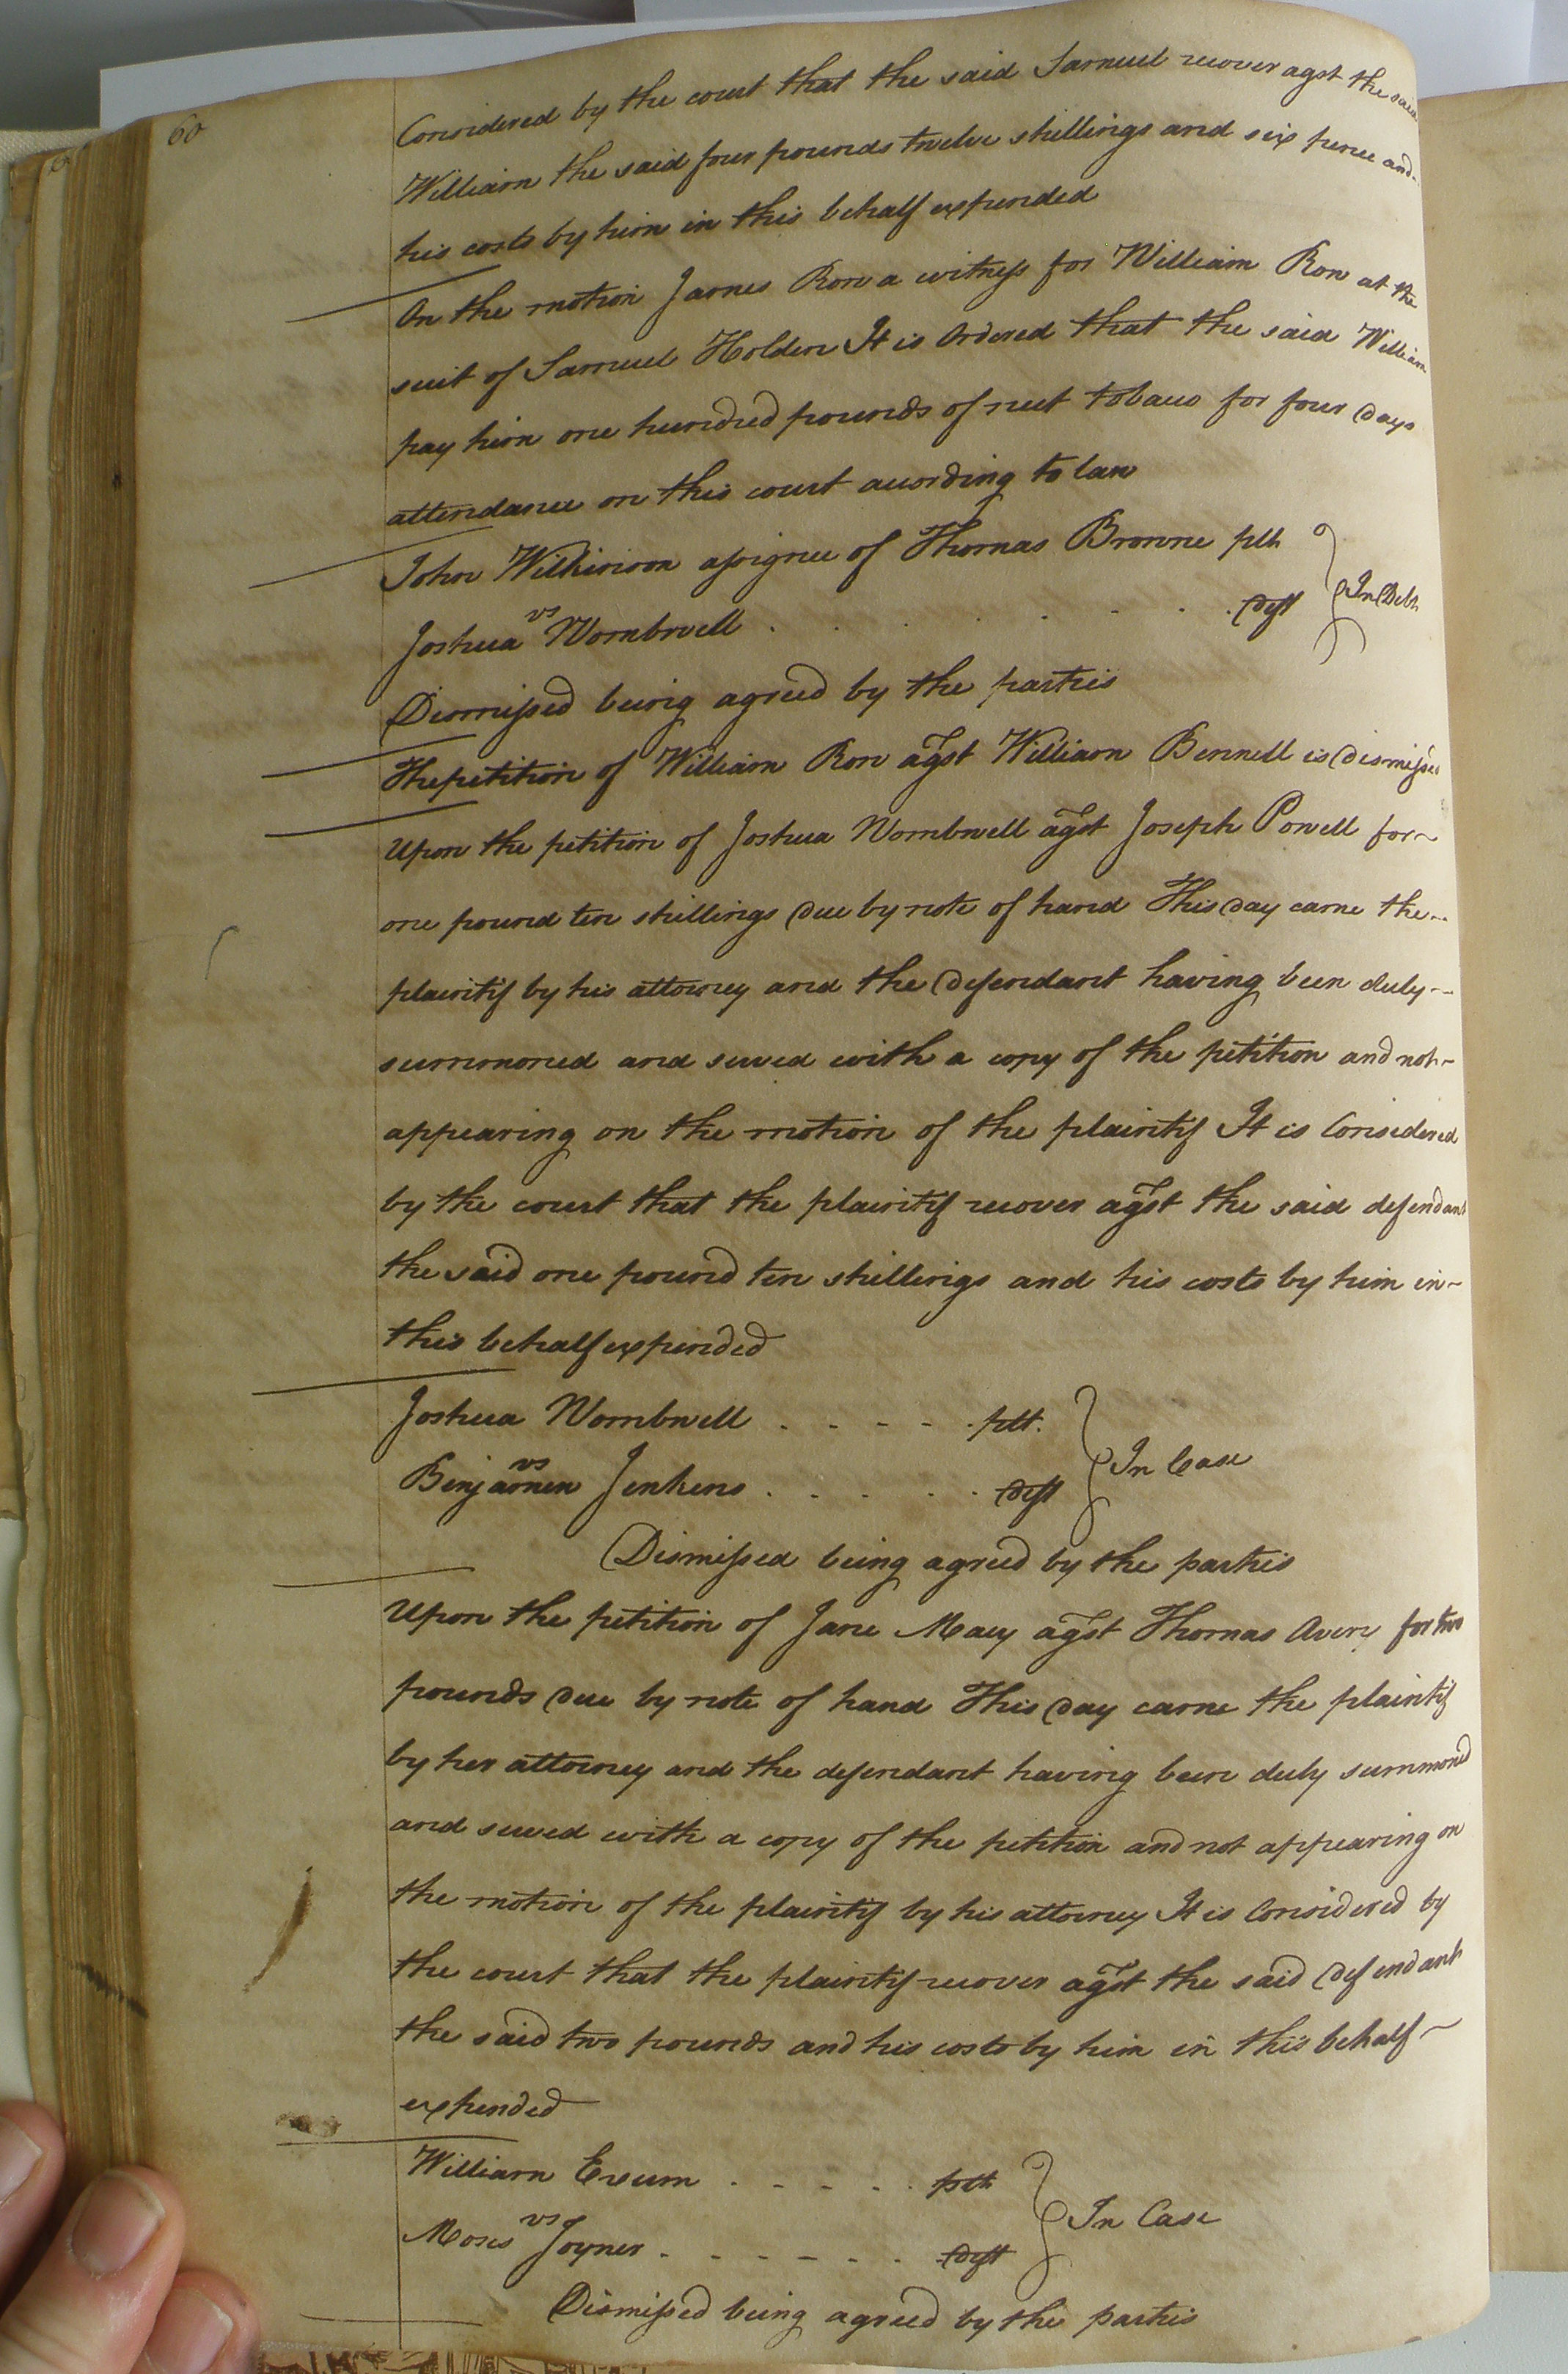 60
Considered by the court that the said Samuel recover agst the said
William the said four pounds twelve shillings and six pence and
his costs by him in this behalf expended
On the motion James Ron a witness for William Ron at the
suit of Samuel Holden It is Ordered that the said William
pay him one hundred pounds of neet tobacco for four days
attendance on this court according to law
John Wilkinson assignee of Thomas Browne plt
vs
In Debt
Joshua Wombwell . . . . . . deft
Dismissed being agreed by the parties
The petition of William Ron agst William Bennell is dismissed
Upon the petition of Joshua Wombwell agst Joseph Powell for
one pound ten shillings due by note of hand This day came the
plaintif by his attorney and the defendant having been duly
summoned and served with a copy of the petition and not
appearing on the motion of the plaintif It is Considered
by the court that the plaintif recover agst the said defendant
the said one pound ten shillings and his costs by him in
this behalf expended
Joshua Wombwell . - - - - plt.
vs
In Case
Benjamen Jenkens . . . . . deft
Dismissed being agreed by the parties
Upon the petition of Jane Macy agst Thomas Avery for two
pounds due by note of hand This day came the plaintif
by her attorney and the defendant having been duly summoned
and served with a copy of the petition and not appearing on
the motion of the plaintif by his attorney It is Considered by
the court that the plaintif recover agst the said defendant
the said two pounds and his costs by him in this behalf
expended
William Exum . - - . . plt
vs
In Case
Moses Joyner . - - - - . deft
Dismissed being agreed by the parties